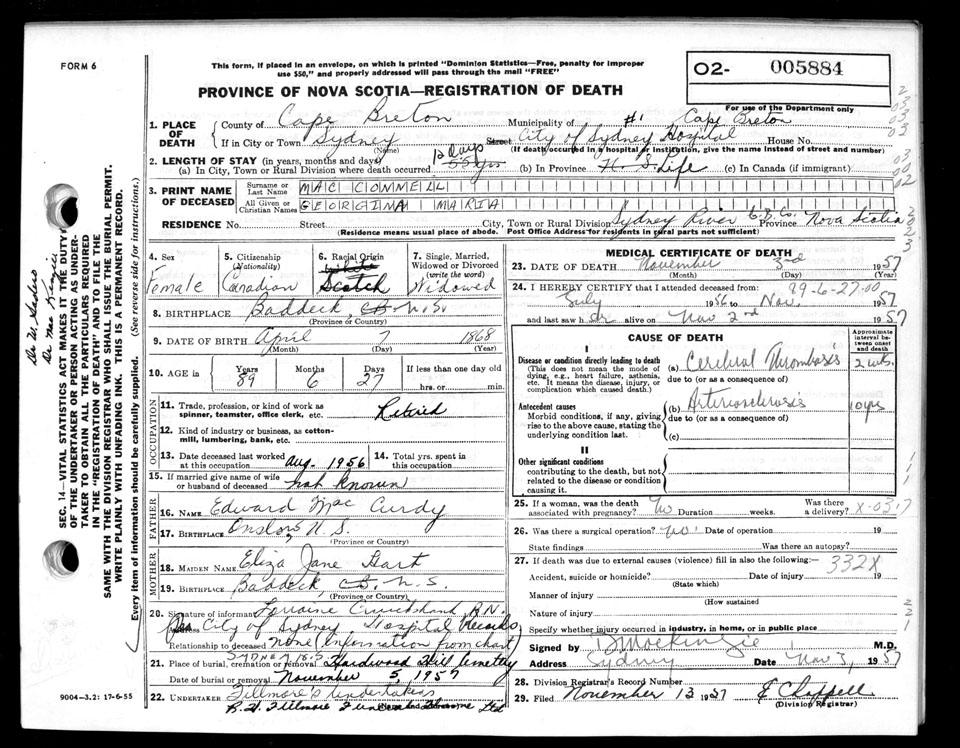 FORM 6
This form, if placed in an envelope, on which is printed "Dominion Statistics—Free, penalty for improper
use $50," and properly addressed will pass through the mail "FREE"
O2- 005884
PROVINCE OF NOVA SCOTIA—REGISTRATION OF DEATH
For use of the Department only
1. PLACE OF DEATH
County of Cape Breton Municipality of #1 Cape Breton
If in City or Town Sydney (Name) Street City of Sydney Hospital House No.
(If death occurred in a hospital or institution, give the name instead of street and number)
2. LENGTH OF STAY (in years, months and days)
(a) In City, Town or Rural Division where death occurred 12 Days 55 yrs (b) In Province Life (c) In Canada (if immigrant)
3. PRINT NAME OF DECEASED
Surname or Last Name MAC CONNELL
All Given or Christian Names GEORGINA MARIA
RESIDENCE No. Street City, Town or Rural Division Sydney River C.B. Co. Province Nova Scotia
(Residence means usual place of abode. Post Office Address for residents in rural parts not sufficient)
4. Sex Female
5. Citizenship (Nationality) Canadian
6. Racial Origin White Scotch
7. Single, Married, Widowed or Divorced (write the word) Widowed
8. BIRTHPLACE Baddeck, CB. N.S.
(Province or Country)
9. DATE OF BIRTH April 7 1868
(Month) (Day) (Year)
10. AGE in Years 89 Months 6 Days 27 If less than one day old hrs. or min.
OCCUPATION
11. Trade, profession, or kind of work as spinner, teamster, office clerk, etc. Retired
12. Kind of industry or business, as cotton-mill, lumbering, bank, etc.
13. Date deceased last worked at this occupation Aug. 1956 14. Total yrs. spent in this occupation
15. If married give name of wife or husband of deceased not known
FATHER
16. NAME Edward MacCurdy
17. BIRTHPLACE Onslow N.S.
(Province or Country)
MOTHER
18. MAIDEN NAME Eliza Jane Hart
19. BIRTHPLACE Baddeck, CB. N.S.
(Province or Country)
20. Signature of informant Lorraine Cruickshank R.N.
Address City of Sydney Hospital Records
Relationship to deceased none (information from chart)
21. Place of burial, cremation or removal SYDNEY N.S. Hardwood Hill Cemetery
Date of burial or removal November 5, 1957
22. UNDERTAKER Fillmore's Undertakers
R.H. Fillmore Funeral Home Ltd
MEDICAL CERTIFICATE OF DEATH
23. DATE OF DEATH November 3rd 1957
(Month) (Day) (Year)
24. I HEREBY CERTIFY that I attended deceased from 89-6-27.00
July 1956 to Nov. 1957
and last saw her alive on Nov 2nd 1957
CAUSE OF DEATH
Approximate interval between onset and death
I
Disease or condition directly leading to death
(This does not mean the mode of dying, e.g., heart failure, asthenia, etc. It means the disease, injury, or complication which caused death.)
(a) Cerebral Thrombosis 2 wks.
due to (or as a consequence of)
Antecedent causes
Morbid conditions, if any, giving rise to the above cause, stating the underlying condition last.
(b) Arteriosclerosis 10 yrs
due to (or as a consequence of)
(c)
II
Other significant conditions
contributing to the death, but not related to the disease or condition causing it.
25. If a woman, was the death associated with pregnancy? No Duration weeks. Was there a delivery? X-0317
26. Was there a surgical operation? No Date of operation 19
State findings Was there an autopsy?
27. If death was due to external causes (violence) fill in also the following:— 332X
Accident, suicide or homicide? Date of injury 19
(State which)
Manner of injury
(How sustained)
Nature of injury
Specify whether injury occurred in industry, in home, or in public place
Signed by D MacKenzie M.D.
Address Sydney Date Nov 3, 1957
28. Division Registrar's Record Number
29. Filed November 13 1957 E Chappell
(Division Registrar)
9004-3.2: 17-6-55
SEC. 14—VITAL STATISTICS ACT MAKES IT THE DUTY
OF THE UNDERTAKER OR PERSON ACTING AS UNDER-
TAKER TO OBTAIN ALL THE PARTICULARS REQUIRED
IN THE "REGISTRATION OF DEATH" AND TO FILE THE
SAME WITH THE DIVISION REGISTRAR WHO SHALL ISSUE THE BURIAL PERMIT.
WRITE PLAINLY WITH UNFADING INK. THIS IS A PERMANENT RECORD.
Every item of information should be carefully supplied. (See reverse side for instructions.)
Dr MacKenzie